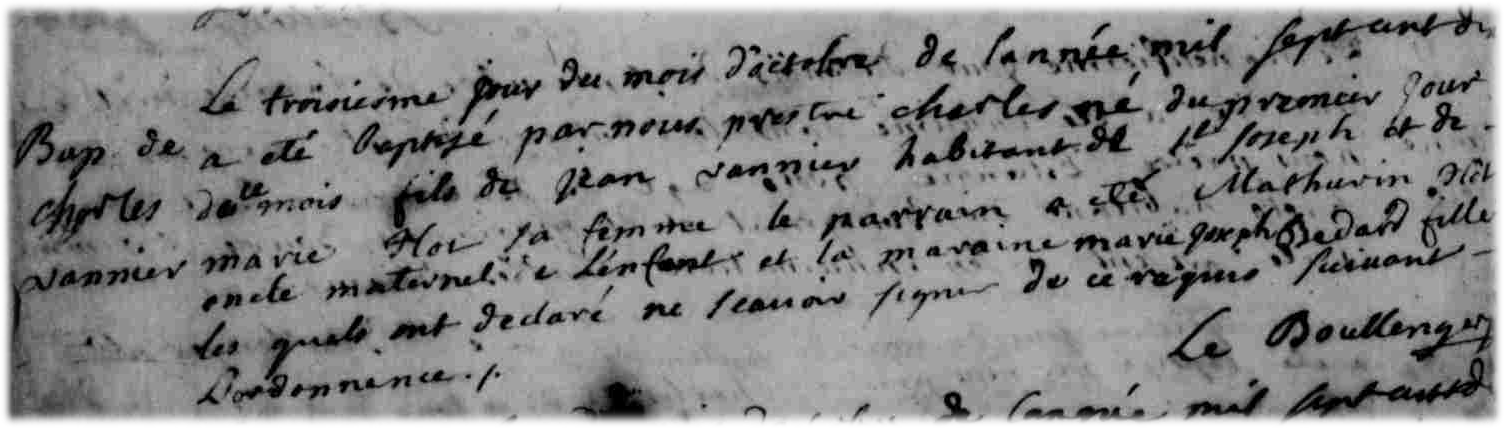 Le troisieme jour du mois d'octobre de lannée mil sept cent di
Bap. de a eté baptisé par nous prestre charles né du premier jour
charles du ce mois fils de jean vannier habitant de St joseph et de
vannier marie Not sa femme le parrain a eté Mathurin Not
oncle maternel de L'enfant et la maraine marie joseph Bedard fille
les quels ont declaré ne scauoir signer de ce requis suiuant
L'ordonnance ./.
Le Boullenger
de lannée mil sept cent d